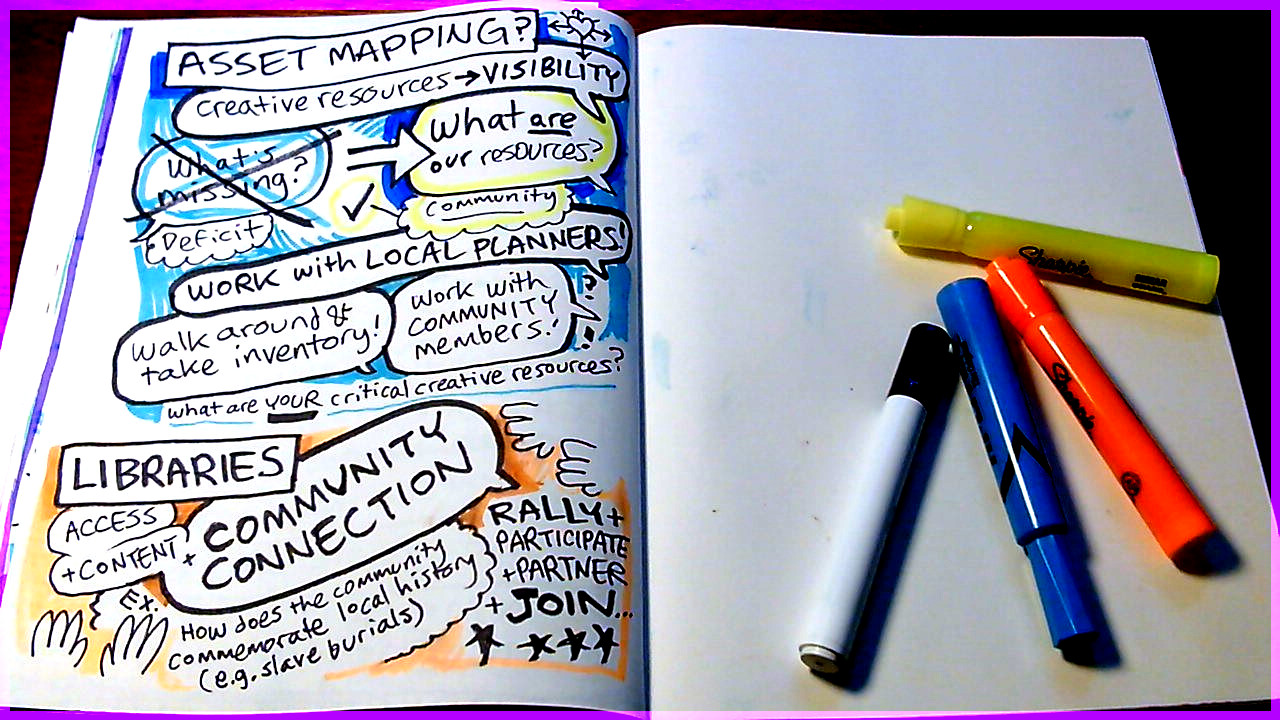 ASSET MAPPING?
creative resources → VISIBILITY
What's
missing?
Deficit
What are
our resources?
✓ community
WORK with LOCAL PLANNERS!
walk around &
take inventory!
Work with
COMMUNITY
members!
?
!
what are YOUR critical creative resources?
LIBRARIES
ACCESS
+CONTENT
+ COMMUNITY
CONNECTION
Ex.
How does the community
commemorate local history
(e.g. slave burials)
RALLY +
PARTICIPATE
+PARTNER
+ JOIN...
Sharpie
Sharpie